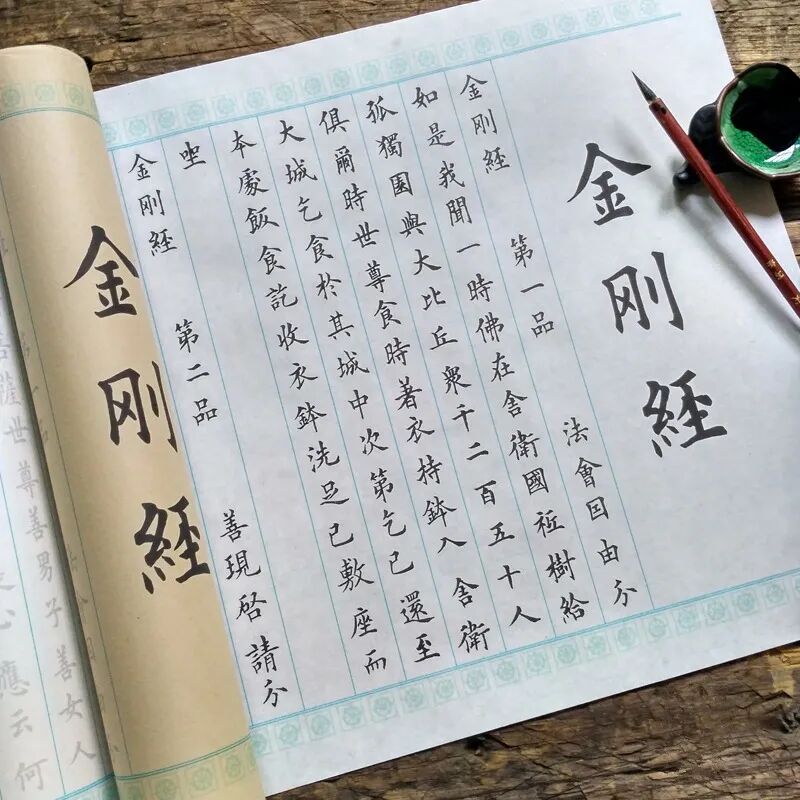 金刚經
金刚經 第一品 法會囙由分
如是我聞一時佛在舍衛國祇樹給
孤獨園與大比丘衆千二百五十人
俱爾時世尊食時著衣持鉢入舍衛
大城乞食於其城中次第乞已還至
本處飯食訖收衣鉢洗足已敷座而
坐
金刚經 第二品 善現啓請分
金刚經
菩薩世尊善男子善女人
心應云何